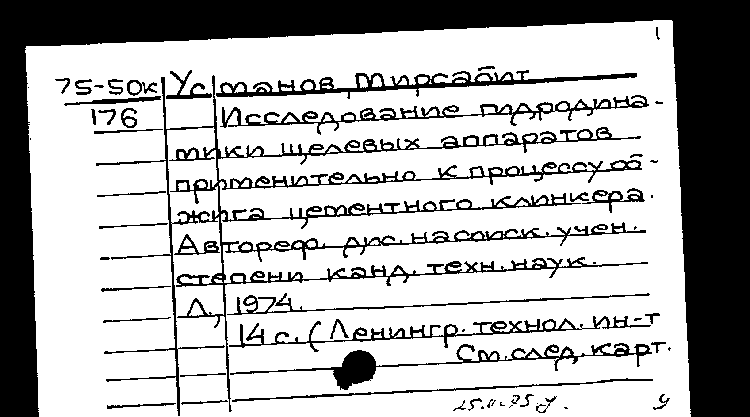 1
75-50к Установ, Мирсабит
176 Исследование гидродина-
мики щелевых аппаратов
применительно к процессу об-
жига цементного клинкера.
Автореф. дис. на соиск. учен.
степени канд. техн. наук.
Л., 1974.
14 с. (Ленингр. технол. ин-т
См. след. карт.
у